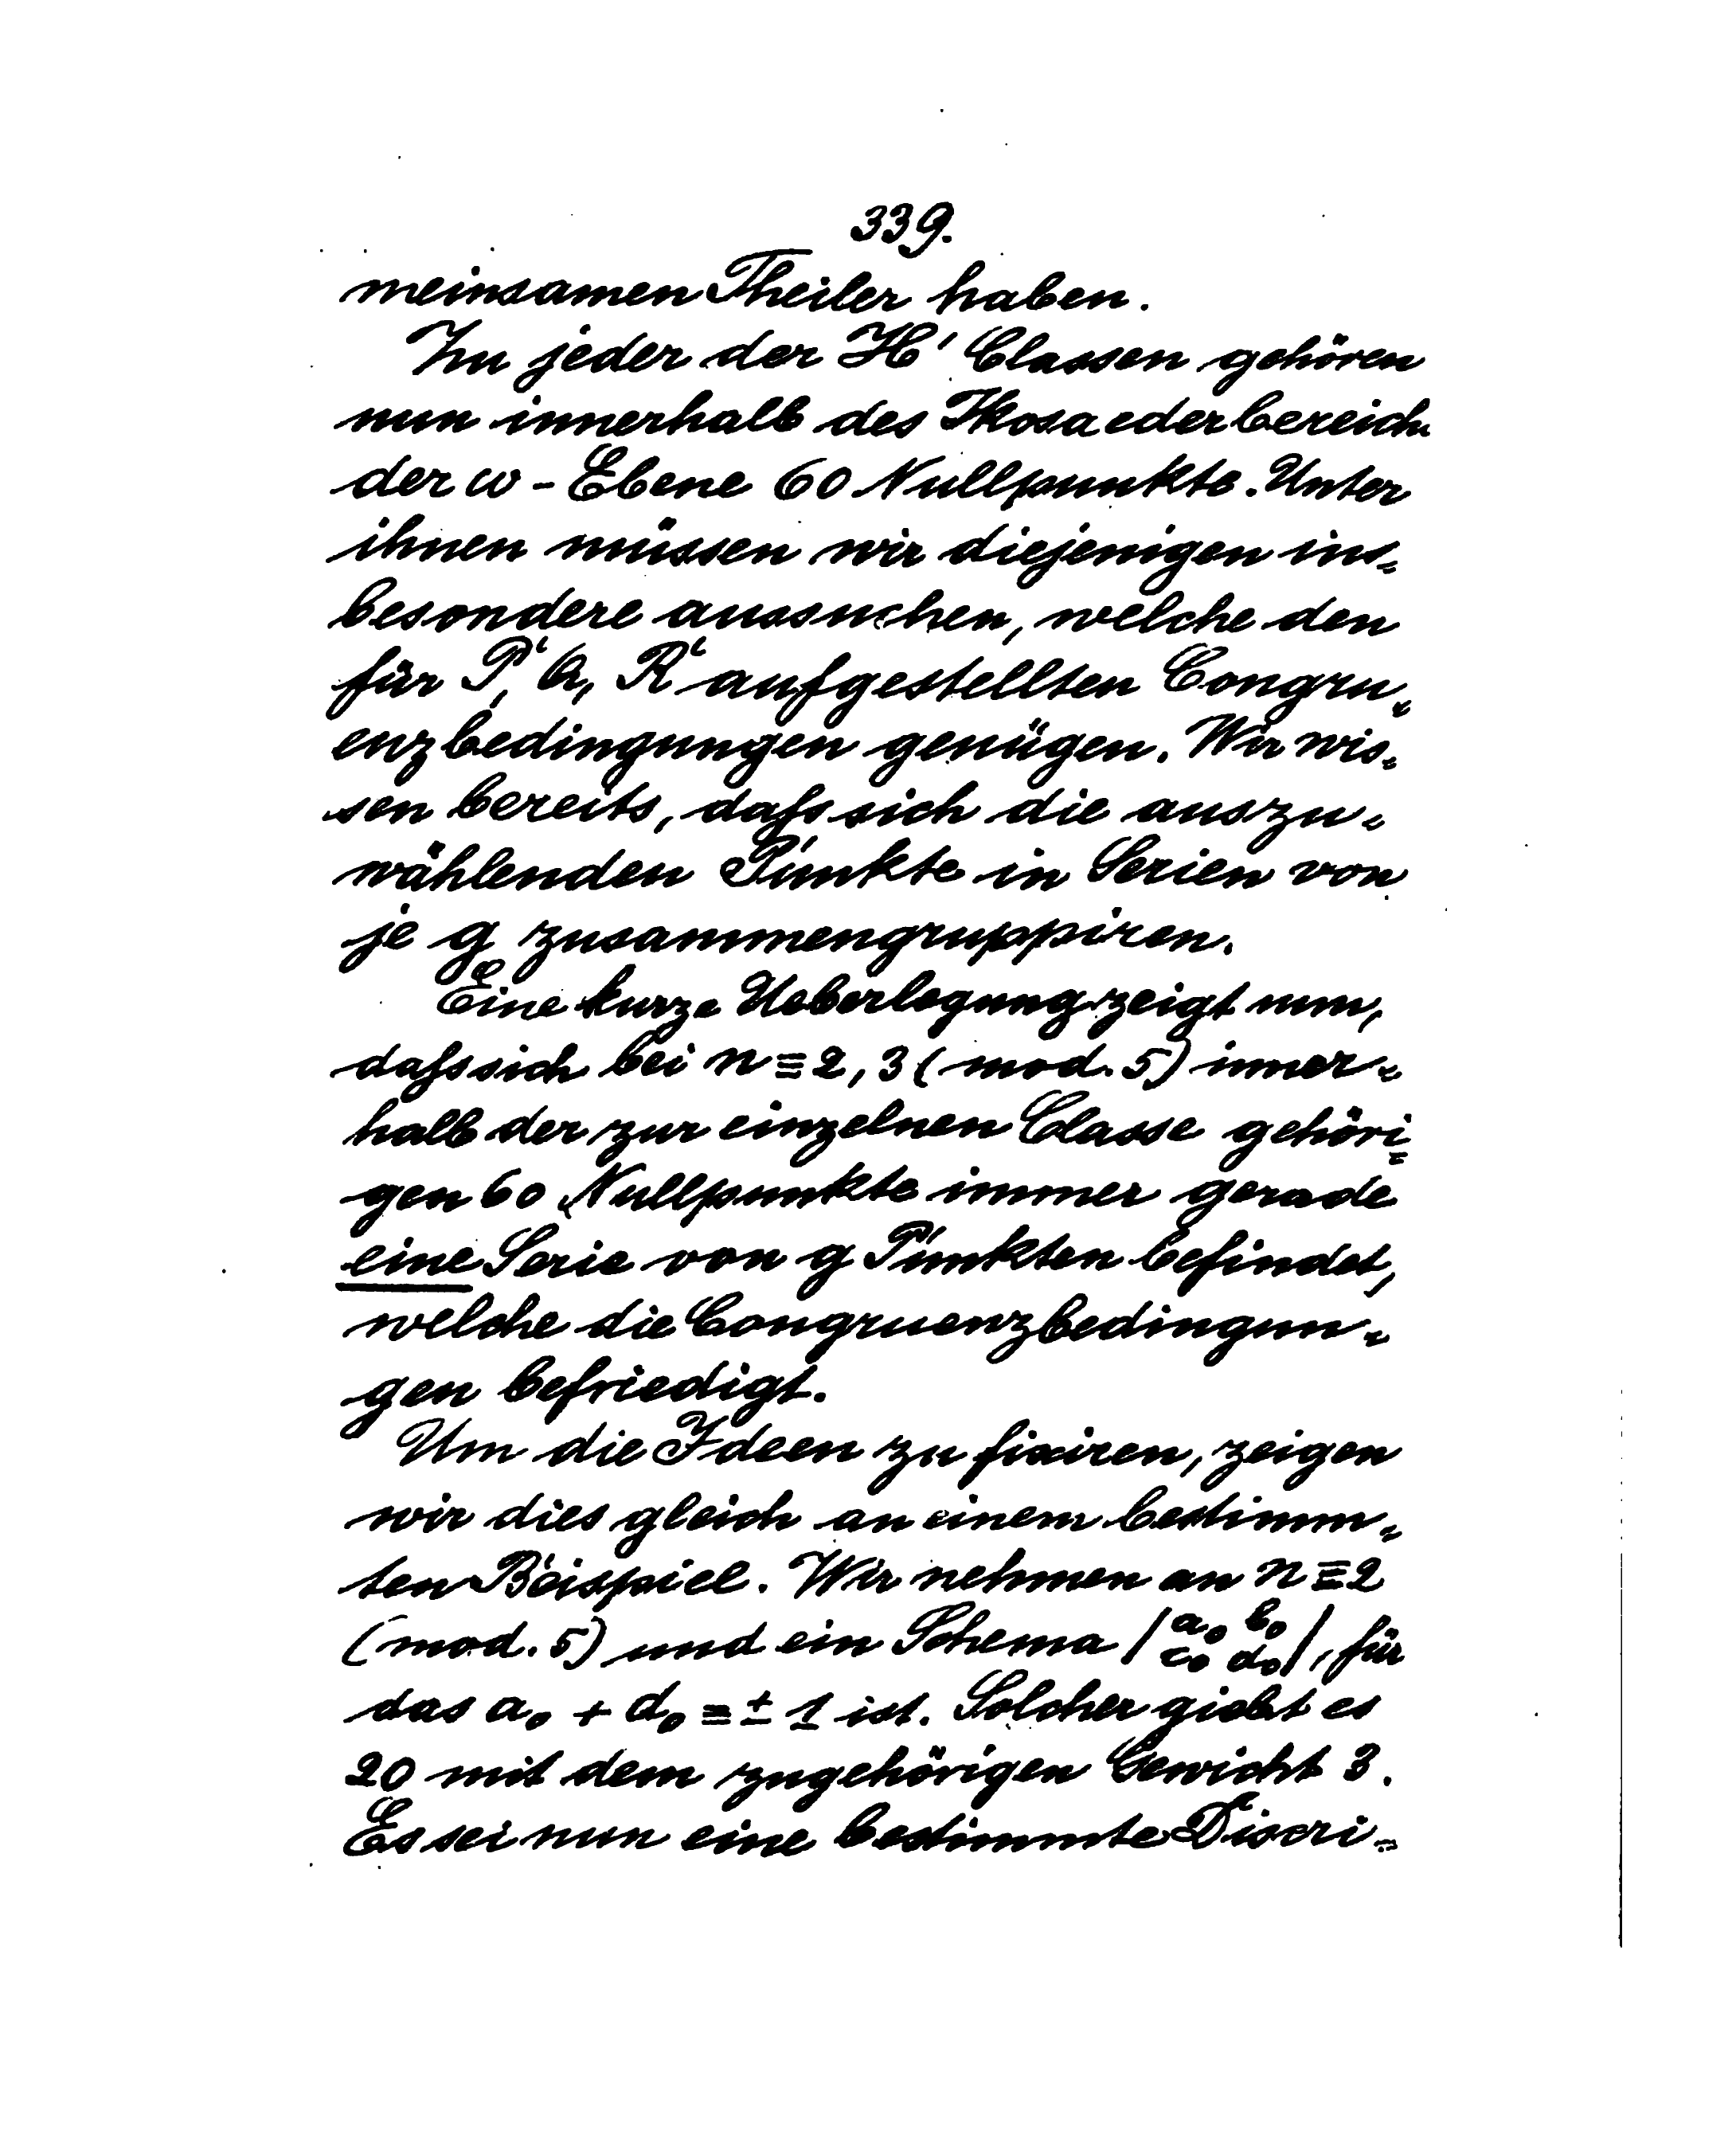 339.
meinsamen Theiler haben.
Zu jeder der H' Classen gehören
nun innerhalb des Ikosaederbereichs
der ω-Ebene 60 Nullpunkte. Unter
ihnen müssen wir diejenigen ins-
besondere aussuchen, welche den
für P, Q, R aufgestellten Congru-
enzbedingungen genügen. Wir wis-
sen bereits, daſs sich die auszu-
wählenden Punkte in Serien von
je g zusammengruppiren.
Eine kurze Ueberlegung zeigt nun,
daſs sich bei n ≡ 2, 3 (mod. 5) inner-
halb der zur einzelnen Classe gehöri-
gen 60 Nullpunkte immer gerade
eine Serie von g Punkten befindet,
welche die Congruenzbedingun-
gen befriedigt.
Um die Ideen zu fixiren, zeigen
wir dies gleich an einem bestimm-
ten Beispiel. Wir nehmen an n ≡ 2
(mod. 5) und ein Schema |a₀ b₀ c₀ d₀|, für
das a₀ + d₀ = ± 1 ist. Solcher giebt es
20 mit dem zugehörigen Gewicht 3.
Es sei nun eine bestimmte Discri-